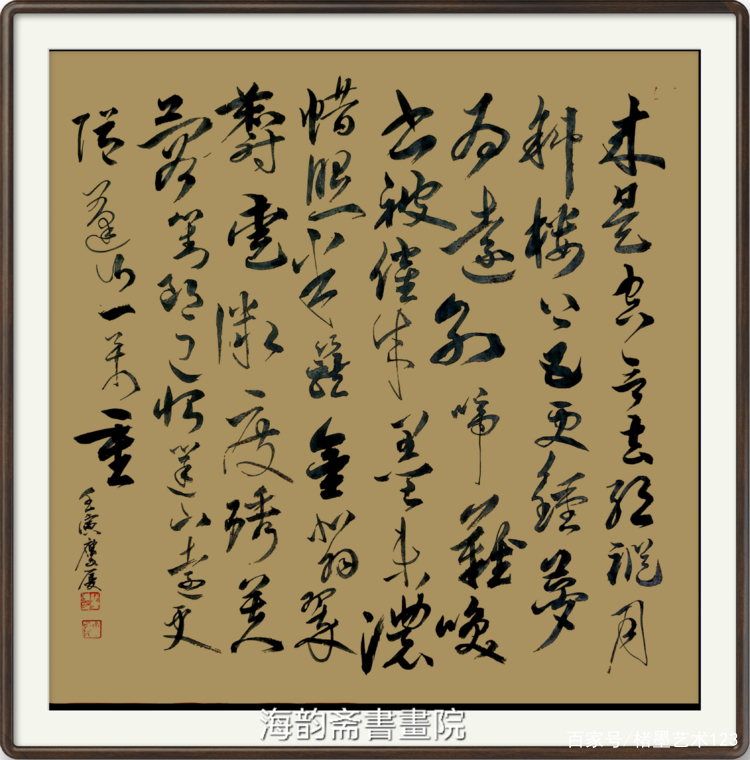 来是空言去絕踪月
斜楼上五更鐘夢
为遠别啼難唤
书被催成墨未濃
蜡照半籠金翡翠
麝熏微度綉芙
蓉劉郎已恨蓬山遠更
隔蓬山一萬重
壬寅
海韵斋書畫院
百家号/楮墨艺术123